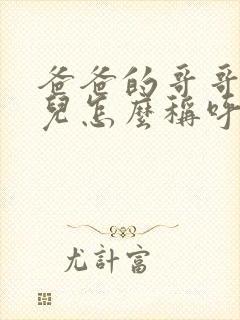 爸爸的哥哥
兒怎麼稱呼
尤計富